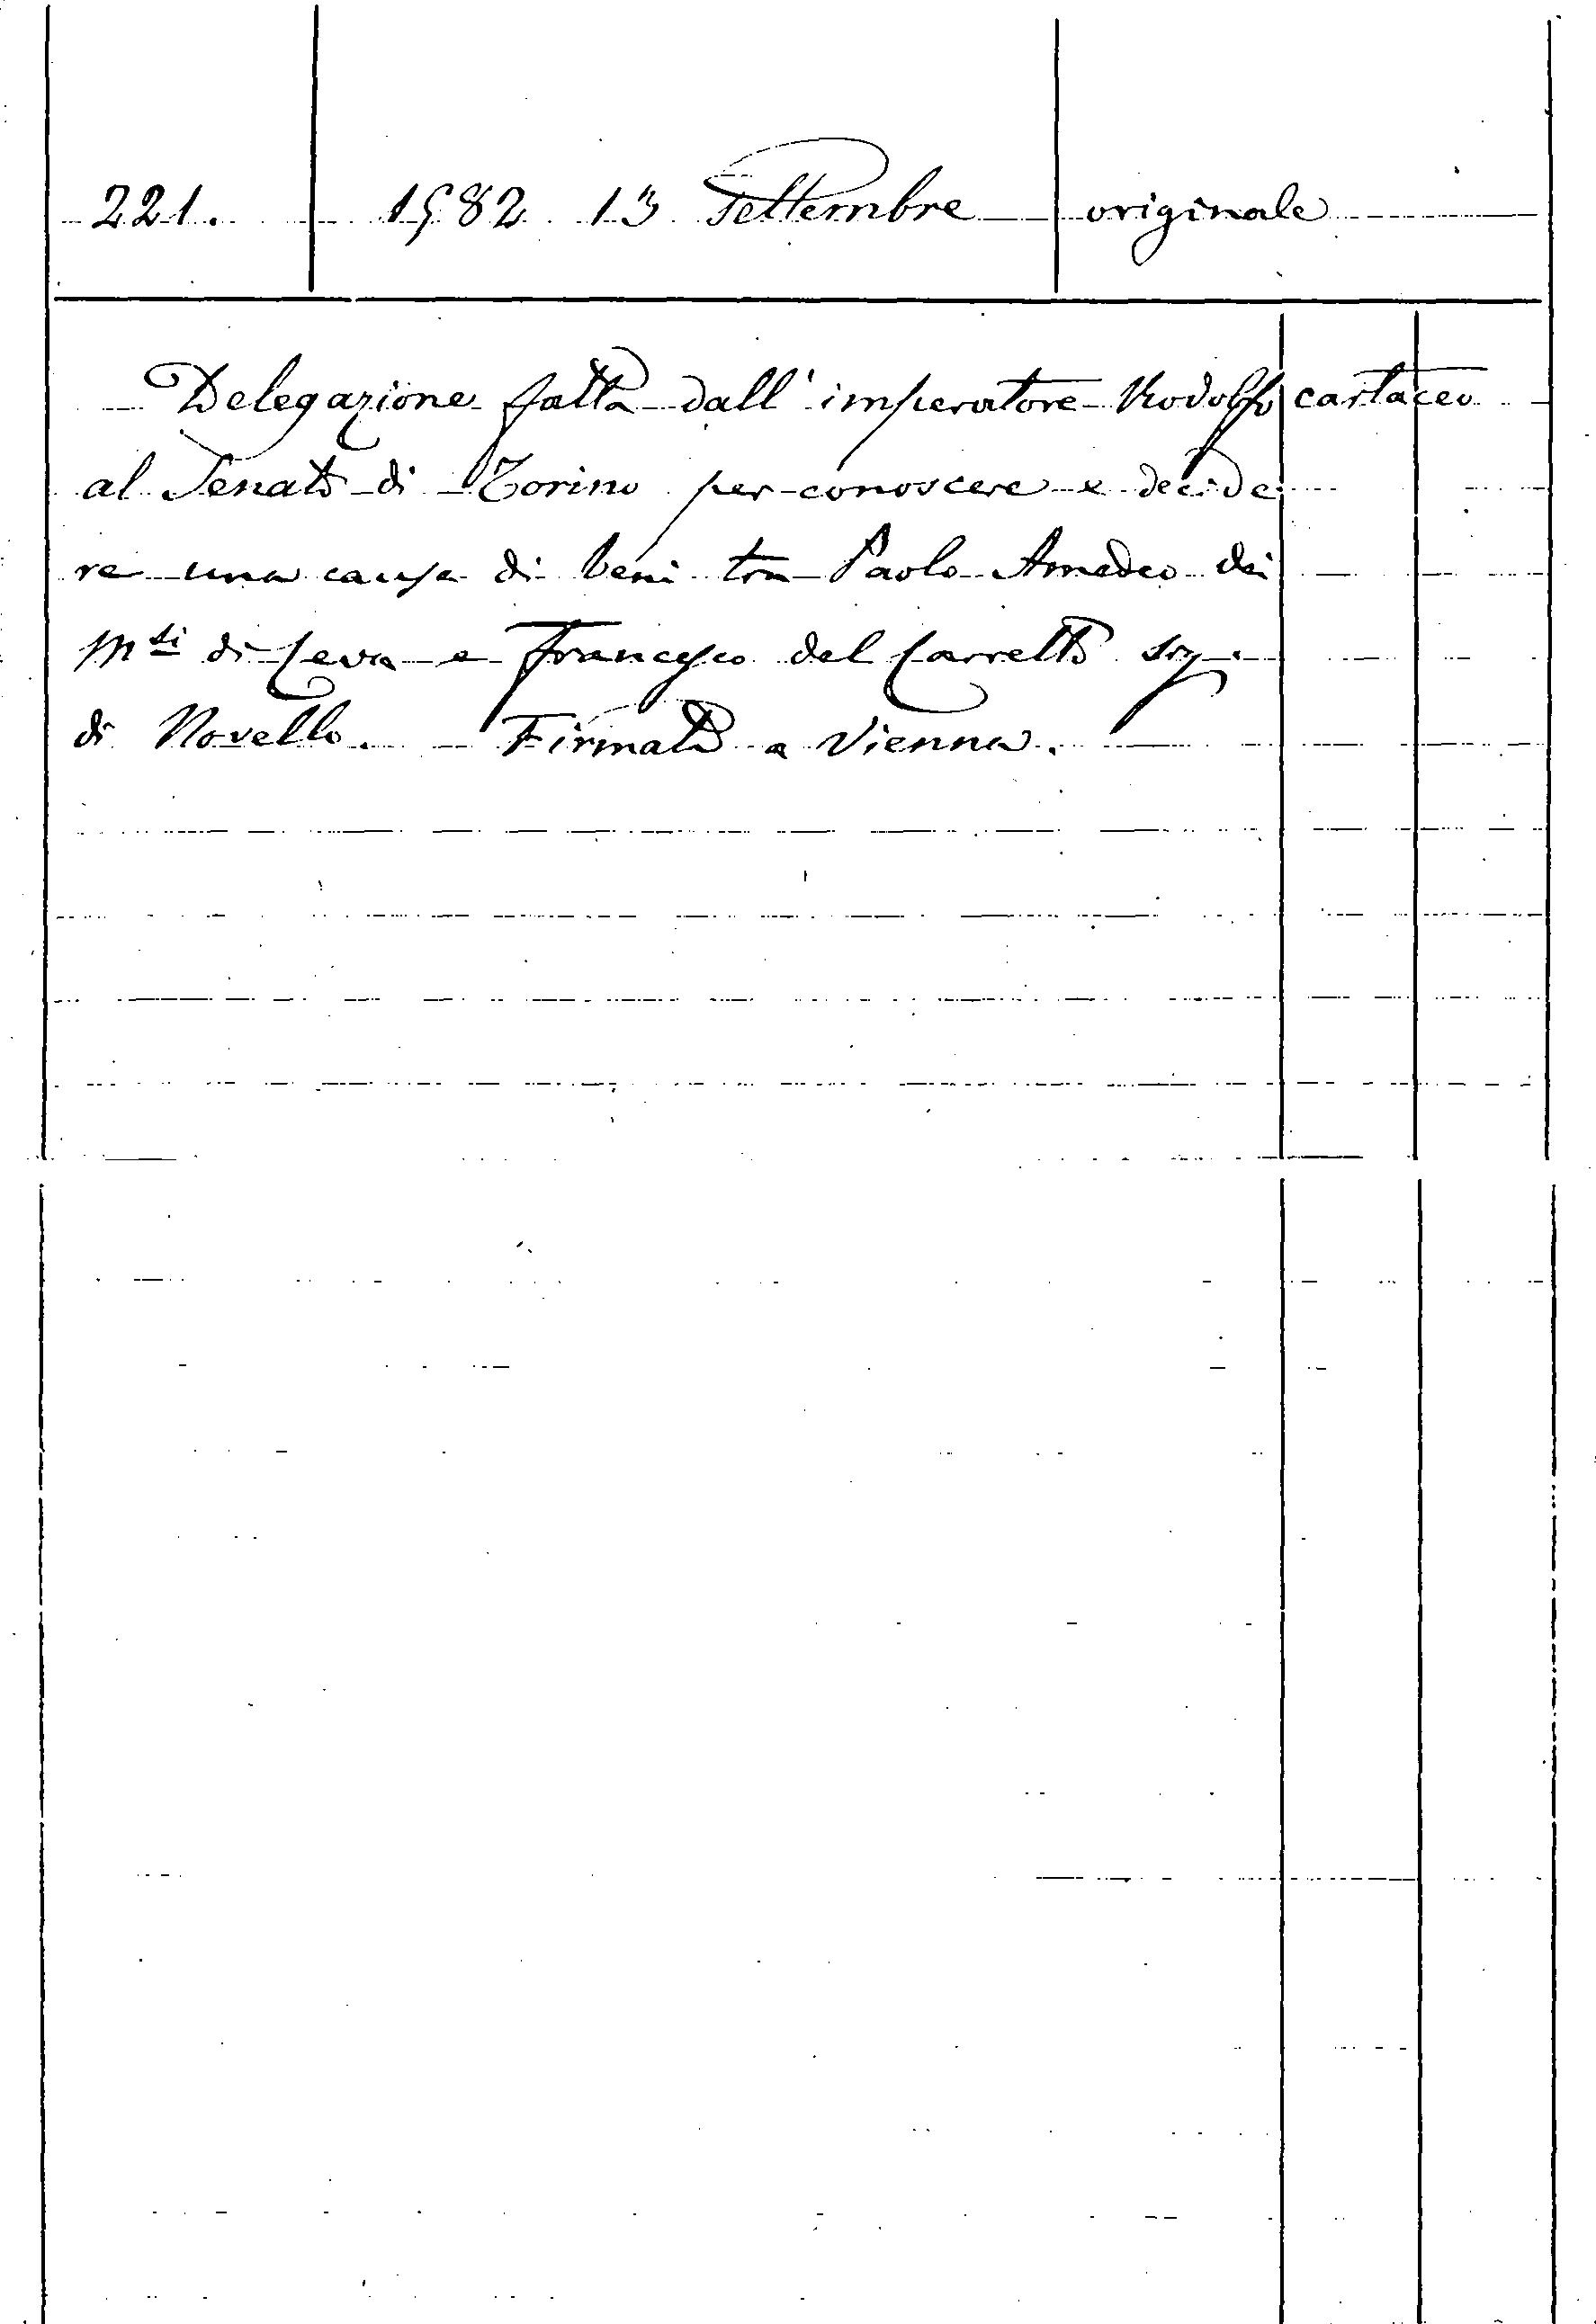 221. 1582 13 Settembre originale
Delegazione fatta dall'imperatore Rodolfo cartaceo
al Senato di Torino per conoscere e decide
re una causa di beni tra Paolo Amedeo dei
M.si di Ceva e Francesco del Carretto sig.
di Novello. Firmato a Vienna.